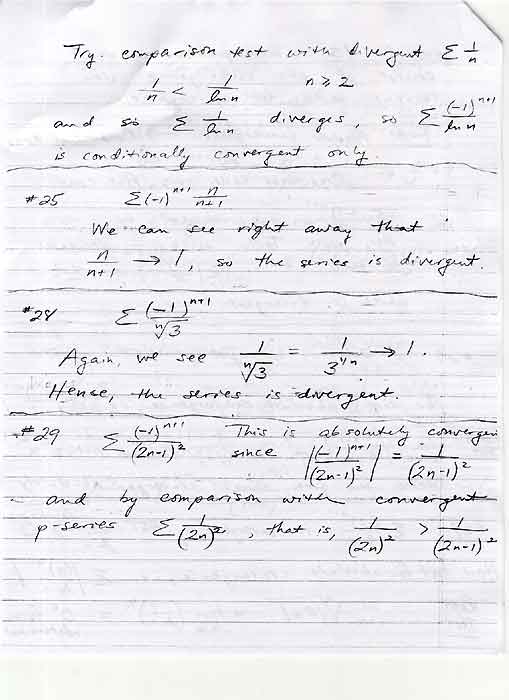 Try. comparison test with divergent Σ 1/n
1/n < 1/ln n n ≥ 2
and so Σ 1/ln n diverges, so Σ (-1)^(n+1)/ln n
is conditionally convergent only.
#25 Σ(-1)^(n+1) n/(n+1)
We can see right away that
n/(n+1) → 1, so the series is divergent.
#28 Σ (-1)^(n+1)/ⁿ√3
Again, we see 1/ⁿ√3 = 1/3^(1/n) → 1.
Hence, the series is divergent.
#29 Σ (-1)^(n+1)/(2n-1)² This is absolutely convergen
since |(-1)^(n+1)/(2n-1)²| = 1/(2n-1)²
and by comparison with convergent
p-series Σ 1/(2n)², that is, 1/(2n)² > 1/(2n-1)²